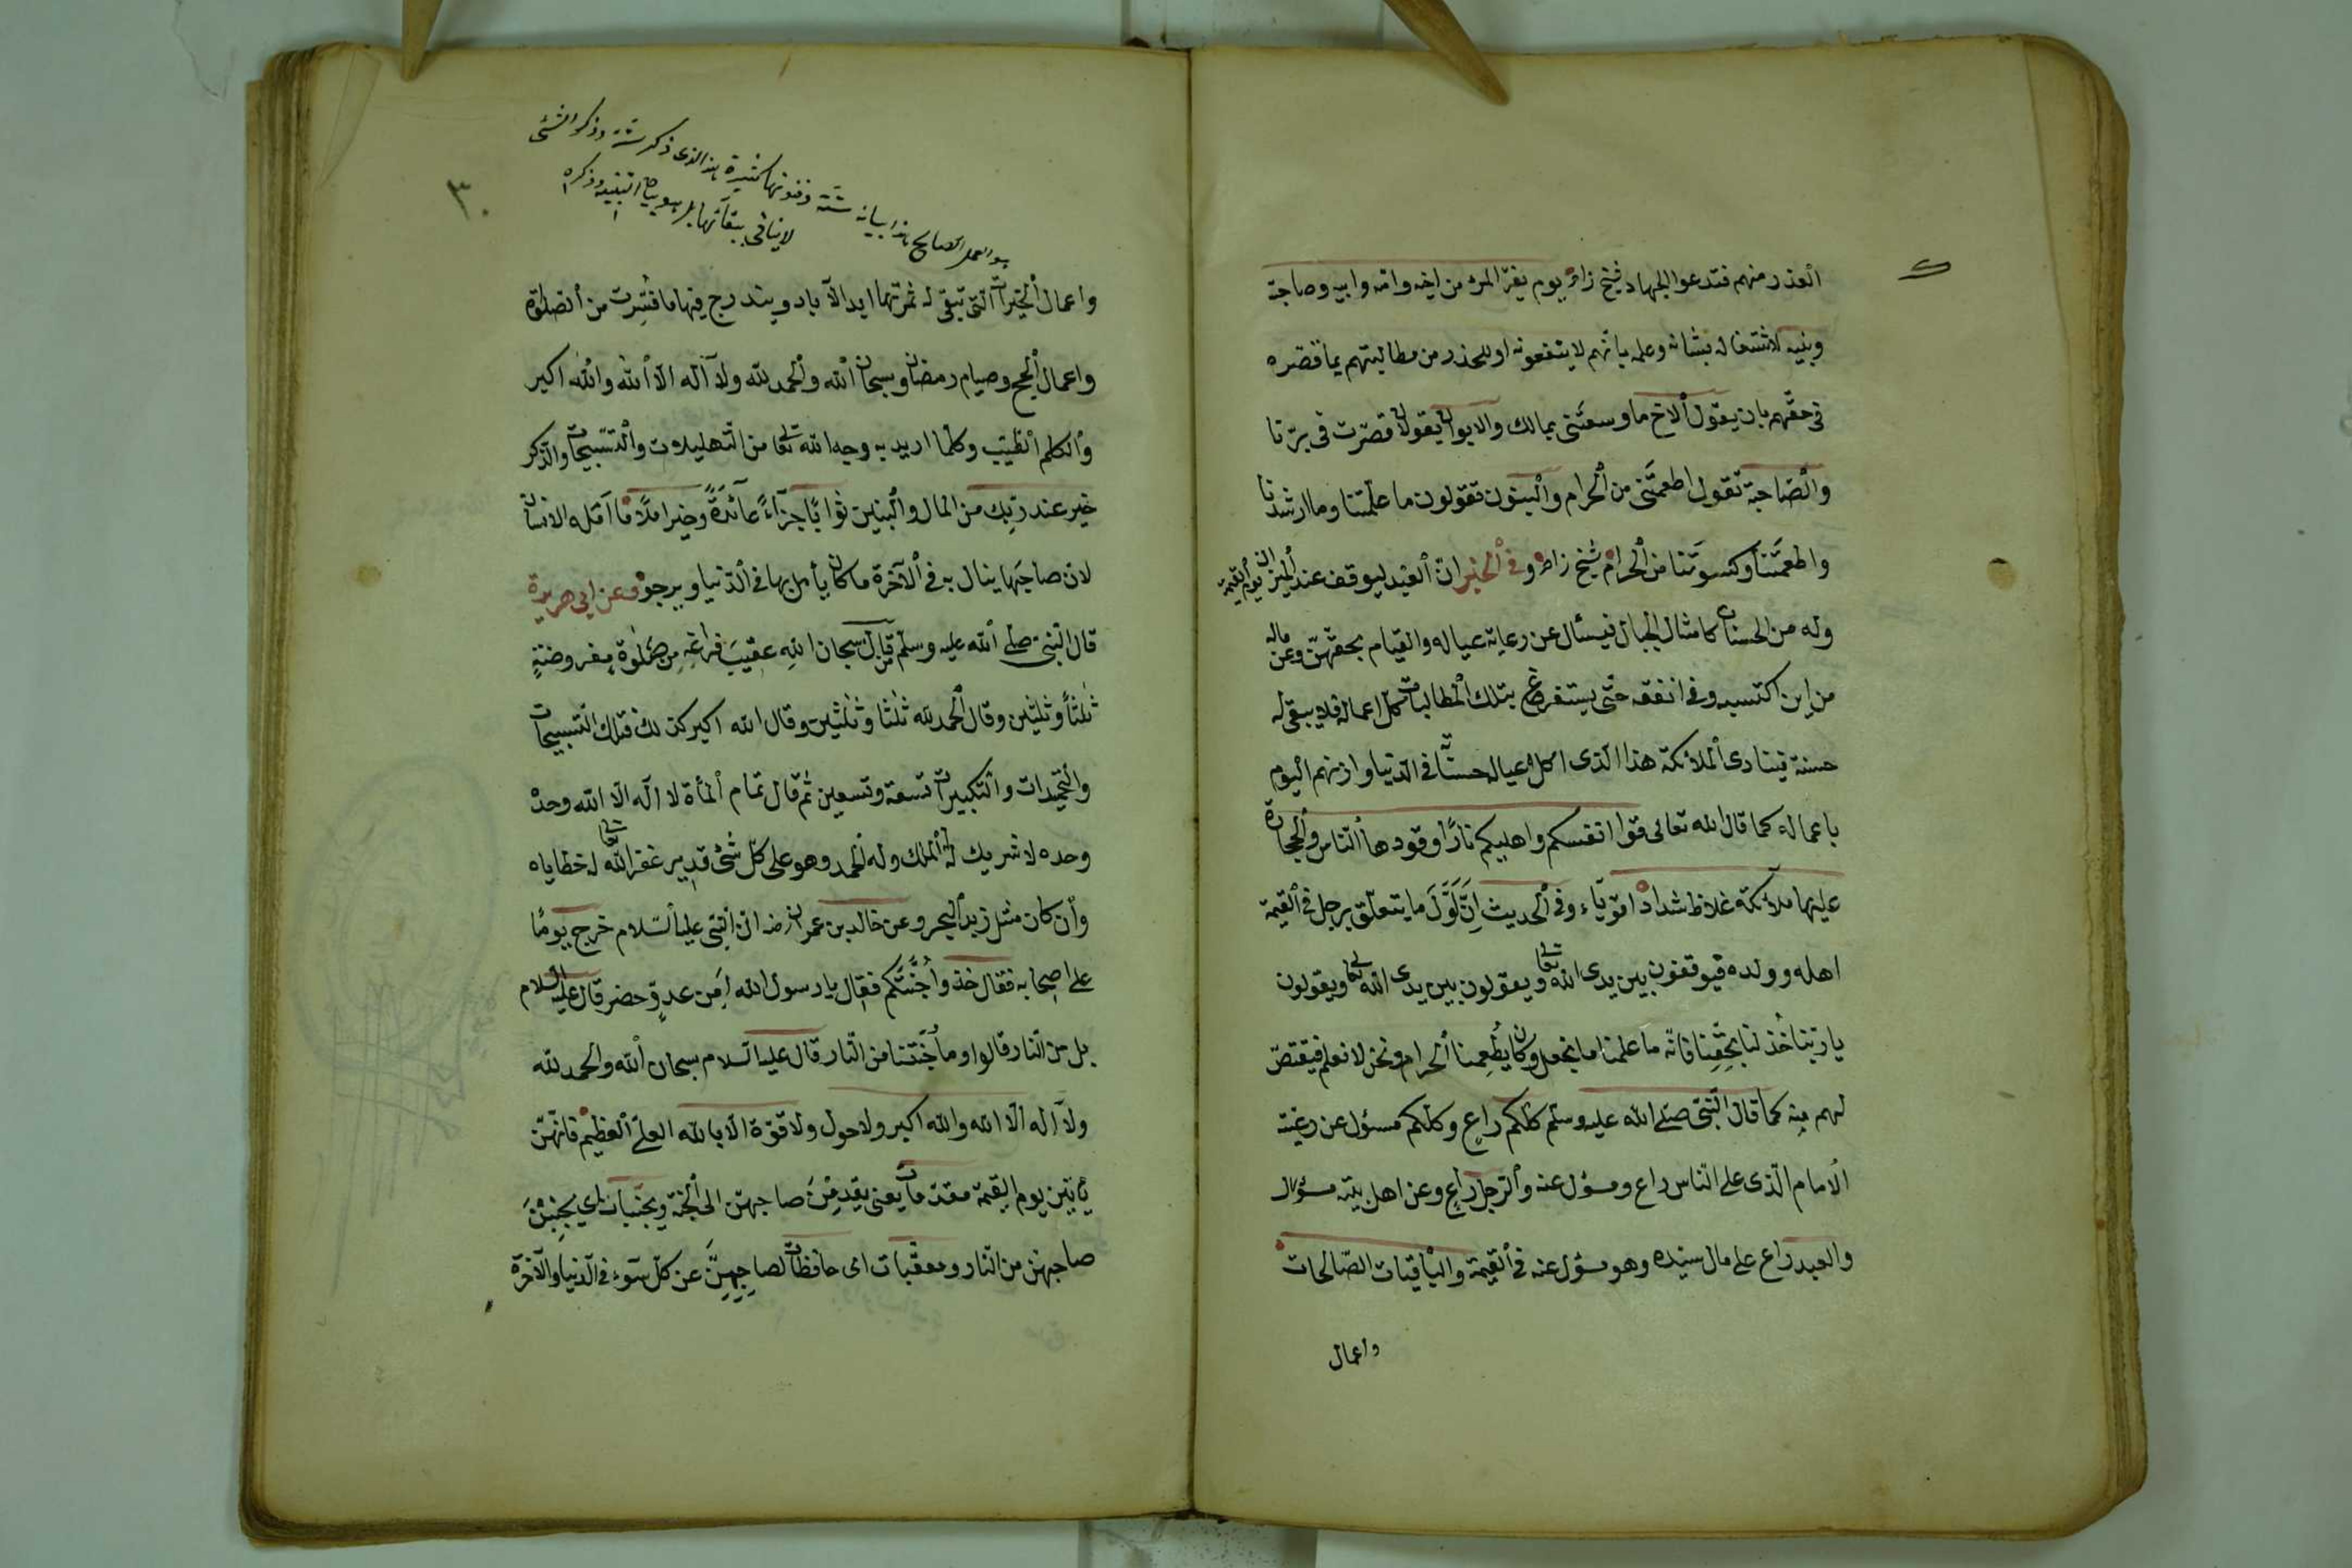 العذر منهم فتدعوا الجهاد شيخ زاده يوم يفرّ المرء من اخيه وامّه وابيه وصاحبته
وبنيه لاشتغاله بشانه وعلمه بانّهم لا ينفعونه او للحذر من مطالبتهم بما قصّره
في حقّهم بان يقول الاخ ما وسعتنى بمالك والابوان يقولان قصّرت في برّنا
والصّاحبة تقول اطعمتنى من الحرام والبنون تقولون ما علّمتنا وما ارشدتنا
واطعمتنا وكسوتنا من الحرام شيخ زاده وفي الخبر انّ العبد ليوقف عند الميزان يوم القيمة
وله من الحسنات كامثال الجبال فيسئال عن رعاية عياله والقيام بحقّهنّ وعن ماله
من اين اكتسبه وفى انفقه حتّى يستفرغ بتلك المطالبات كل اعماله فلا يبقى له
حسنة فينادى الملائكة هذا الذى اكل عياله حسناته في الدّنيا وارتهم اليوم
باعماله كما قال الله تعالى قوا انفسكم واهليكم نارًا وقودها النّاس والحجارة
عليها ملائكة غلاظ شداد اقويّاء وفي الحديث انّ اوّل ما يتعلّق برجل في القيمة
اهله وولده فيوقفون بين يدى الله تعالى ويقولون بين يدى الله تعالى ويقولون
يا ربّنا خذ لنا بحقّنا فانّه ما علمنا ما نجهل وكان يطعمنا الحرام ونحن لا نعلم فيقتصّ
لهم منه كما قال النّبىّ صلى الله عليه وسلم كلّكم راعٍ وكلّكم مسؤل عن رعيّته
الامام الّذى على النّاس راع ومسؤل عنه والرّجل راعٍ وعن اهل بيته مسؤل
والعبد راع على مال سيّده وهو مسؤل عنه في القيمة والباقيات الصّالحات
واعمال
٣٠
هو العمل الصالح هذا بيانه
لا ينافى بقائها
واعمال الخيرات الّتى تبقى له ثمرتها ابد الآباد ويندرج فيها ما فسّرت من الصّلوة
واعمال الحج وصيام رمضان وسبحان الله والحمد لله ولا آله الّا الله والله اكبر
والكلم الطّيّب وكلّما اريد به وجه الله تعالى من التّهليلات والتّسبيحات والذّكر
خير عند ربّك من المال والبنين ثوابًا جزآءً عآئدةً وخير املًا ما آمله الانسان
لان صاحبها ينال به في الآخرة ما كان يأمل بها في الدّنيا ويرجو وعن ابى هريرة
قال النّبىّ صلى الله عليه وسلم من قال سبحان اللهِ عقيبَ فراغِهِ من صلوة مفروضةٍ
ثلثًا وثلثين وقال الحمد لله ثلثا وثلثين وقال الله اكبر كذلك فتلك التّسبيحات
والتّحميدات والتّكبيرات تسعة وتسعين ثم قال تمام المأة لا اله الّا الله وحده
وحده لا شريك له له الملك وله الحمد وهو على كلّ شئ قدير غفر الله تعالى له خطاياه
وان كان مثل زبد البحر وعن خالد بن عمران رضه انّ النّبىّ عليه السّلام خرج يومًا
على اصحابه فقال خذوا جُنّتكم فقال يا رسول الله اَمِن عدوّ حضر قال عليه السّلام
بل من النّار قالوا وما جُنّتنا من النّار قال عليه السّلام سبحان الله والحمد لله
ولا آله الّا الله والله اكبر ولا حول ولا قوّة الّا بالله العلىّ العظيم فانّهنّ
يأتين يوم القيمة مقدّمات يعنى يقدمن صاحبهنّ الى الجنّة ومجنّبات اى يجنبن
صاحبهنّ من النّار ومعقّبات اى حافظات لصاحبهنّ عن كلّ سوء في الدّنيا والآخرة